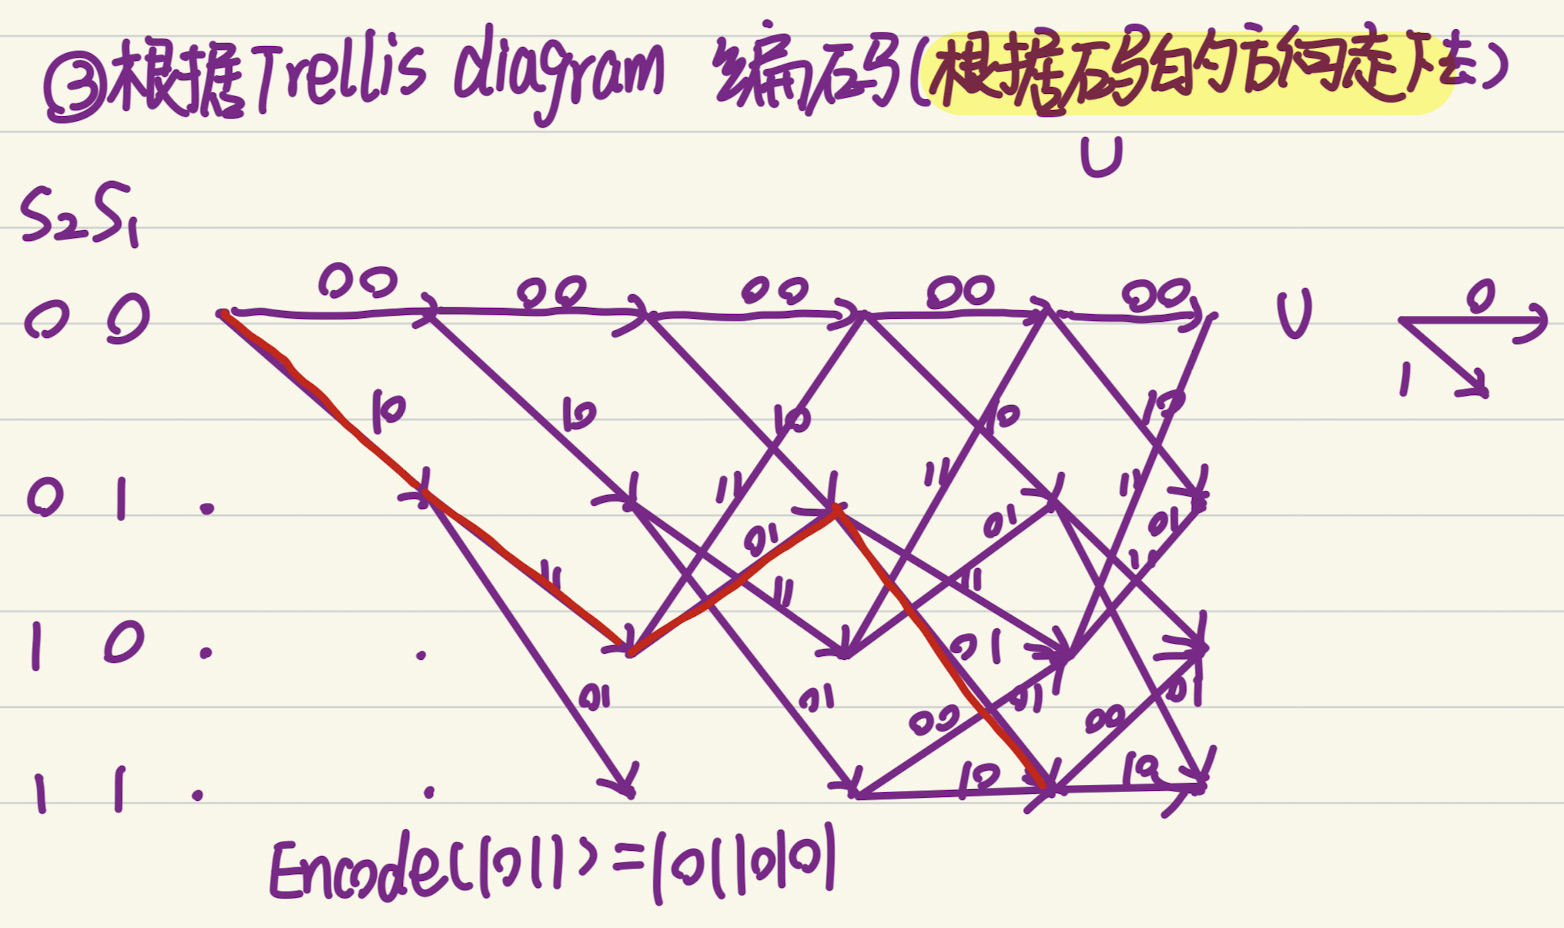 ③根据Trellis diagram 编码(根据码的方向走下去)
U
S₂S₁
00 00 00 00 00
00 U 0
1
10 10 10 10 10
01.
11 11 11
01 01 01
11 11 11 11
10..
01 01 01 01
00 00
11..
10 10
Encode(1011)=10110101